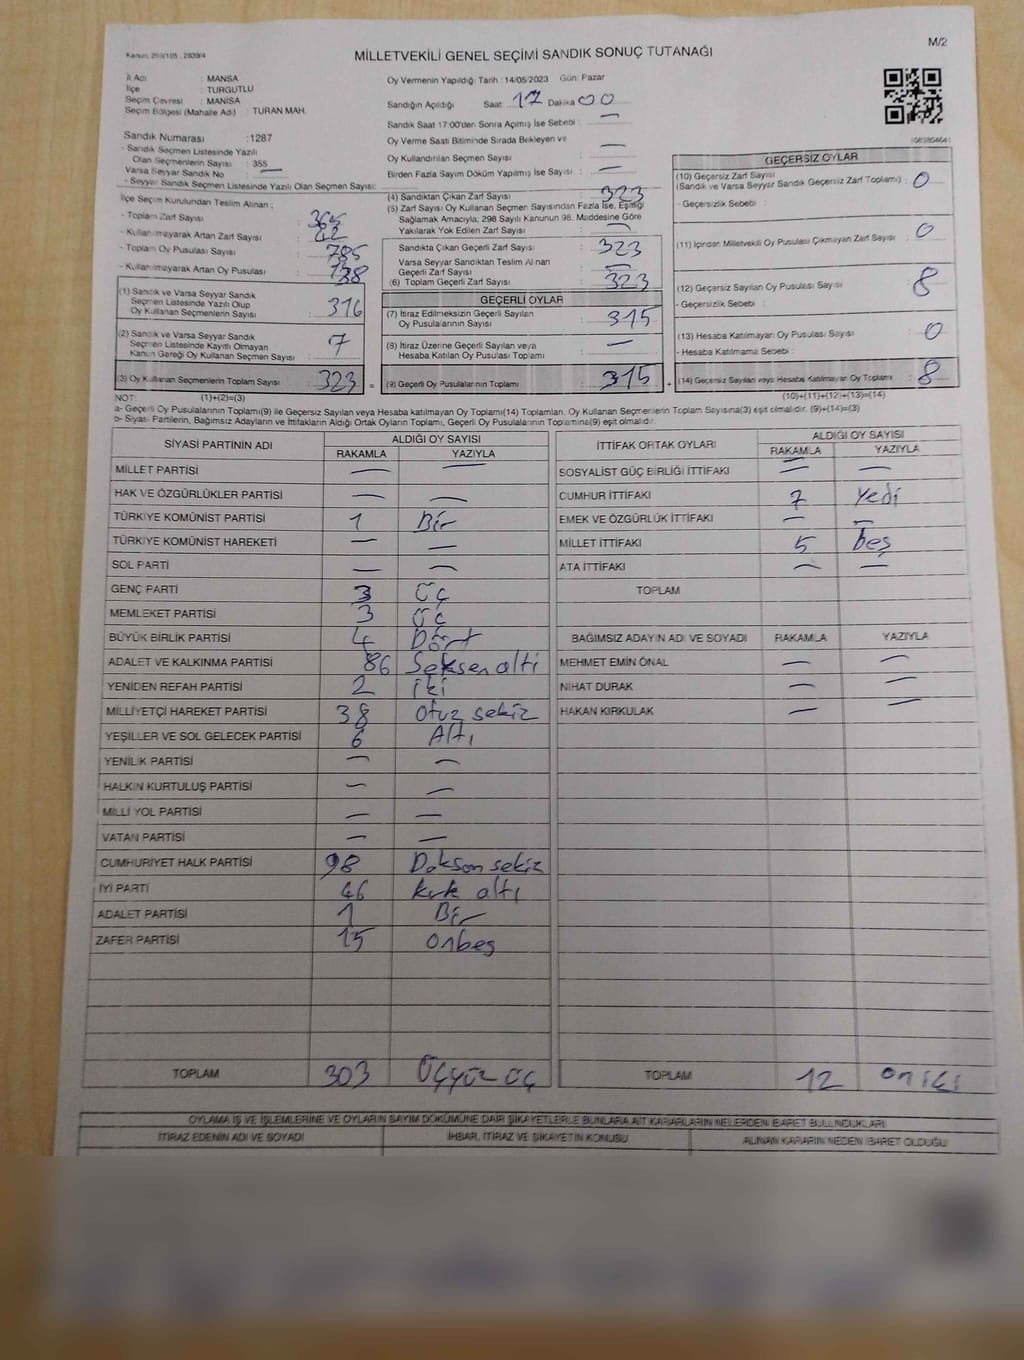 M/2
MİLLETVEKİLİ GENEL SEÇİMİ SANDIK SONUÇ TUTANAĞI
İl Adı : MANİSA
İlçe : TURGUTLU
Seçim Çevresi : MANİSA
Seçim Bölgesi (Mahalle Adı) : TURAN MAH.
Oy Vermenin Yapıldığı Tarih : 14/05/2023 Gün: Pazar
Sandığın Açıldığı Saat 17 Dakika 00
Sandık Saat 17:00'den Sonra Açılmış İse Sebebi : —
Oy Verme Saati Bitiminde Sırada Bekleyen ve
Oy Kullandırılan Seçmen Sayısı : —
Birden Fazla Sayım Döküm Yapılmış İse Sayısı : —
Sandık Numarası : 1287
- Sandık Seçmen Listesinde Yazılı
Olan Seçmenlerin Sayısı : 355
Varsa Seyyar Sandık No —
- Seyyar Sandık Seçmen Listesinde Yazılı Olan Seçmen Sayısı:
İlçe Seçim Kurulundan Teslim Alınan ;
- Toplam Zarf Sayısı : 365
- Kullanılmayarak Artan Zarf Sayısı : 42
- Toplam Oy Pusulası Sayısı : 785
- Kullanılmayarak Artan Oy Pusulası :
(1) Sandık ve Varsa Seyyar Sandık
Seçmen Listesinde Yazılı Olup
Oy Kullanan Seçmenlerin Sayısı : 316
(2) Sandık ve Varsa Seyyar Sandık
Seçmen Listesinde Kayıtlı Olmayan
Kanun Gereği Oy Kullanan Seçmen Sayısı : 7
(3) Oy Kullanan Seçmenlerin Toplam Sayısı : 323
(4) Sandıktan Çıkan Zarf Sayısı : 323
(5) Zarf Sayısı Oy Kullanan Seçmen Sayısından Fazla İse, Eşitliği
Sağlamak Amacıyla; 298 Sayılı Kanunun 98. Maddesine Göre
Yakılarak Yok Edilen Zarf Sayısı : —
Sandıkta Çıkan Geçerli Zarf Sayısı : 323
Varsa Seyyar Sandıktan Teslim Alınan
Geçerli Zarf Sayısı : —
(6) Toplam Geçerli Zarf Sayısı : 323
GEÇERLİ OYLAR
(7) İtiraz Edilmeksizin Geçerli Sayılan
Oy Pusulalarının Sayısı : 315
(8) İtiraz Üzerine Geçerli Sayılan veya
Hesaba Katılan Oy Pusulası Toplamı : —
= (9) Geçerli Oy Pusulalarının Toplamı : 315 +
GEÇERSİZ OYLAR
(10) Geçersiz Zarf Sayısı
(Sandık ve Varsa Seyyar Sandık Geçersiz Zarf Toplamı) : 0
- Geçersizlik Sebebi :
(11) İçinden Milletvekili Oy Pusulası Çıkmayan Zarf Sayısı : 0
(12) Geçersiz Sayılan Oy Pusulası Sayısı : 8
- Geçersizlik Sebebi :
(13) Hesaba Katılmayan Oy Pusulası Sayısı : 0
- Hesaba Katılmama Sebebi :
(14) Geçersiz Sayılan veya Hesaba Katılmayan Oy Toplamı : 8
NOT: (1)+(2)=(3) (10)+(11)+(12)+(13)=(14)
a- Geçerli Oy Pusulasının Toplamı(9) ile Geçersiz Sayılan veya Hesaba katılmayan Oy Toplamı(14) Toplamları, Oy Kullanan Seçmenlerin Toplam Sayısına(3) eşit olmalıdır. (9)+(14)=(3)
b- Siyasi Partilerin, Bağımsız Adayların ve İttifakların Aldığı Ortak Oyların Toplamı, Geçerli Oy Pusulalarının Toplamına(9) eşit olmalıdır.
SİYASİ PARTİNİN ADI ALDIĞI OY SAYISI
RAKAMLA YAZIYLA
MİLLET PARTİSİ — —
HAK VE ÖZGÜRLÜKLER PARTİSİ — —
TÜRKİYE KOMÜNİST PARTİSİ 1 Bir
TÜRKİYE KOMÜNİST HAREKETİ — —
SOL PARTİ — —
GENÇ PARTİ 3 Üç
MEMLEKET PARTİSİ 3 Üç
BÜYÜK BİRLİK PARTİSİ 4 Dört
ADALET VE KALKINMA PARTİSİ 86 Seksen altı
YENİDEN REFAH PARTİSİ 2 iki
MİLLİYETÇİ HAREKET PARTİSİ 38 Otuz sekiz
YEŞİLLER VE SOL GELECEK PARTİSİ 6 Altı
YENİLİK PARTİSİ — —
HALKIN KURTULUŞ PARTİSİ — —
MİLLİ YOL PARTİSİ — —
VATAN PARTİSİ — —
CUMHURİYET HALK PARTİSİ 98 Doksan sekiz
İYİ PARTİ 46 kırk altı
ADALET PARTİSİ 1 Bir
ZAFER PARTİSİ 15 onbeş
TOPLAM 303 Üçyüz üç
İTTİFAK ORTAK OYLARI ALDIĞI OY SAYISI
RAKAMLA YAZIYLA
SOSYALİST GÜÇ BİRLİĞİ İTTİFAKI — —
CUMHUR İTTİFAKI 7 Yedi
EMEK VE ÖZGÜRLÜK İTTİFAKI — —
MİLLET İTTİFAKI 5 beş
ATA İTTİFAKI — —
TOPLAM
BAĞIMSIZ ADAYIN ADI VE SOYADI RAKAMLA YAZIYLA
MEHMET EMİN ÖNAL — —
NİHAT DURAK — —
HAKAN KIRKULAK — —
TOPLAM 12 on iki
OYLAMA İŞ VE İŞLEMLERİNE VE OYLARIN SAYIM DÖKÜMÜNE DAİR ŞİKAYETLERLE BUNLARA AİT KARARLARIN NELERDEN İBARET BULUNDUKLARI
İTİRAZ EDENİN ADI VE SOYADI İHBAR, İTİRAZ VE ŞİKAYETİN KONUSU ALINAN KARARIN NEDEN İBARET OLDUĞU